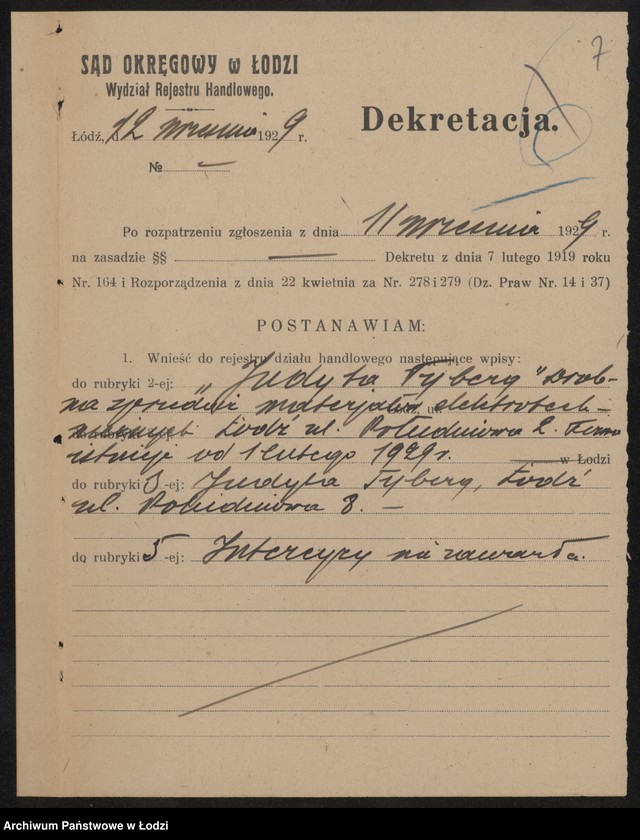 7
SĄD OKRĘGOWY w ŁODZI
Wydział Rejestru Handlowego.
Dekretacja.
Łódź, d. 12 września 1929 r.
№ —
Po rozpatrzeniu zgłoszenia z dnia 11 września 1929 r.
na zasadzie §§ — Dekretu z dnia 7 lutego 1919 roku
Nr. 164 i Rozporządzenia z dnia 22 kwietnia za Nr. 278 i 279 (Dz. Praw Nr. 14 i 37)
POSTANAWIAM:
1. Wnieść do rejestru działu handlowego następujące wpisy:
do rubryki 2-ej: „Judyta Tyberg" Drob-
na sprzedaż materjałów elektrotech-
nicznych Łódź ul. Południowa 2. Firma
istnieje od 1 lutego 1929 r. w Łodzi
do rubryki 3-ej: Judyta Tyberg, Łódź
ul. Południowa 8. —
do rubryki 5-ej: Intercyzy nie zawarła.
Archiwum Państwowe w Łodzi